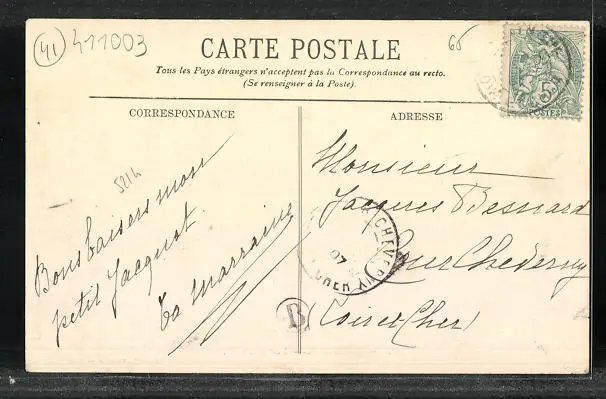 41 411003
65
CARTE POSTALE
Tous les Pays étrangers n'acceptent pas la Correspondance au recto.
(Se renseigner à la Poste).
POSTES
CORRESPONDANCE
ADRESSE
5214
Bons baisers mon
petit Jacquot
Ta Marraine
Monsieur
Jacques Besnard
Cour Cheverny
(Loir et Cher)
CHEVERNY
07
CHER
B